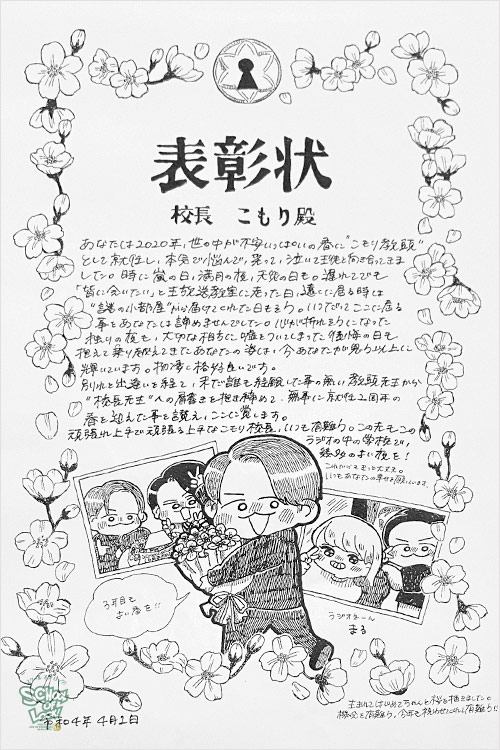 表彰状
校長 こもり殿
あなたは2020年、世の中が不安いっぱいの春に"こもり教頭"
として就任し、本気で悩んで、笑って、泣いて生徒と向き合ってきま
した。時に嵐の日、満月の夜、元気の日も。遅れてでも
「皆に会いたい」と生放送教室に走った日、遠くに居る時は
"謎の小部屋"から届けてくれた日もそう。いつだってここに居る
事をあなたは諦めませんでした。心が折れそうになった
独りの夜も、大切な相手に嘘をついてしまった後悔の日も
抱えて乗り越えてきたあなたの姿は、今あなたが思う以上に
輝いています。物凄く格好良いです。
別れと出逢いを経て、未だ誰も経験した事の無い教頭先生から
"校長先生"への肩書きを抱き締めて、無事に就任2周年の
春を迎えた事を讃え、ここに賞します。
頑張れ上手で頑張る上手なこもり校長、いつも有難う。この先もこの
ラジオの中の学校で、
最高のよい夜を!
これからもきっと大丈夫。
いつもあなたの幸せを願っています。
3年目も
よい春を!!
ラジオネーム
まる
生まれてはじめてちゃんと桜を描きました。
機会を有難う、今年も祝わせてくれて有難う!!
SCHOOL OF LOCK!
令和4年 4月1日